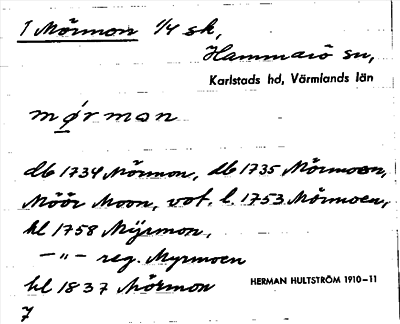 1 Mörmon 1/4 sk,
Hammarö sn,
Karlstads hd, Värmlands län
mǿrmon
db 1734 Mörmon, db 1735 Mörmoen,
Möör Moon, vot. l. 1753 Mörmoen,
hl 1758 Mÿrmon,
—"— reg. Myrmoen
hl 1837 Mörmon
HERMAN HULTSTRÖM 1910-11
7